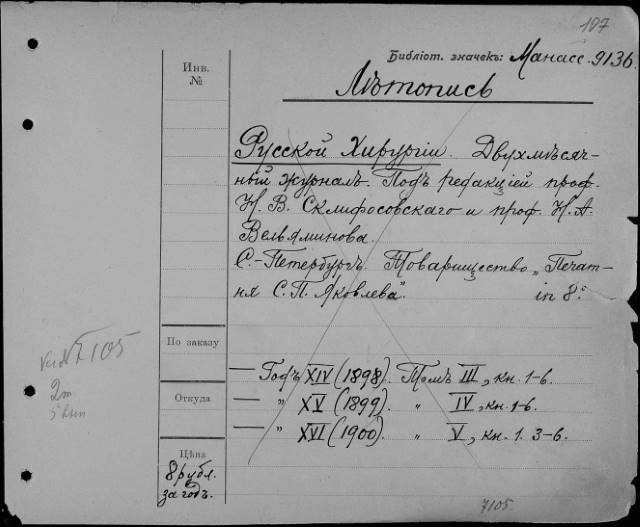 107
Библіот. значекъ: Манасс. 9136.
Инв.
№
Лѣтопись
Русской Хирургіи. Двухмѣсяч-
ный журналъ. Подъ редакціей проф.
Н. В. Склифосовскаго и проф. Н. А.
Вельяминова.
С.-Петербургъ. Товарищество „Печат-
ня С. П. Яковлева". in 8.°
По заказу
7105
2т
— Годъ XIV (1898). Томъ III, кн. 1-6.
Откуда
— „ XV (1899) „ IV, кн. 1-6.
— „ XVI (1900). „ V, кн. 1. 3-6.
Цѣна
8 рубл.
за годъ.
7105.